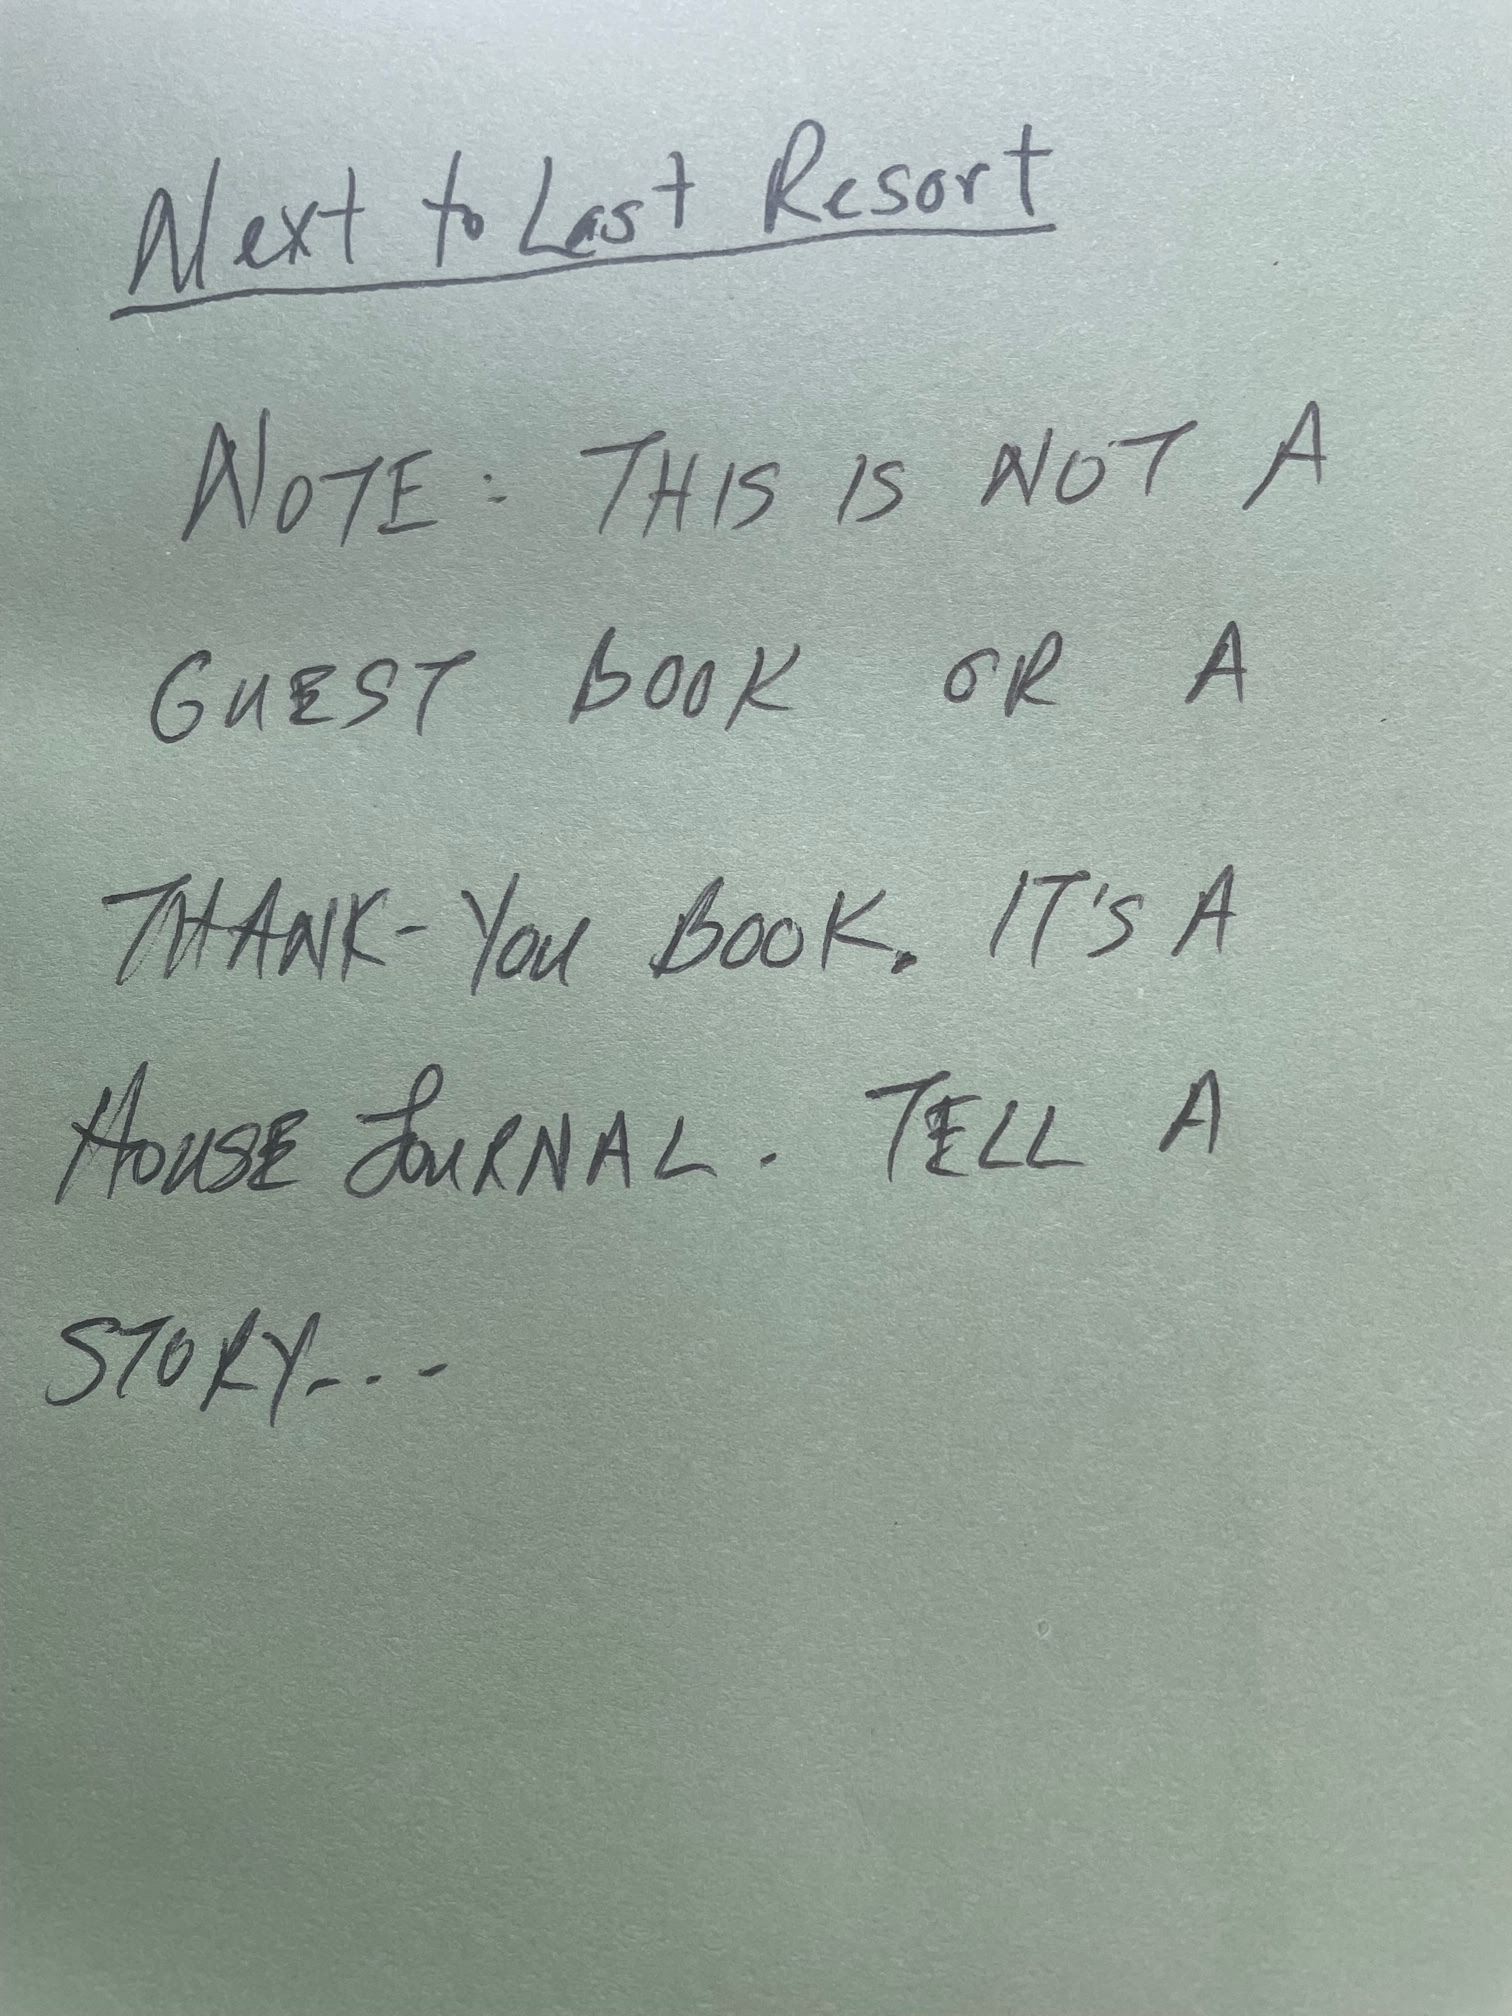 Next to Last Resort
NOTE: THIS IS NOT A
GUEST BOOK OR A
THANK-YOU BOOK. IT'S A
HOUSE JOURNAL. TELL A
STORY...